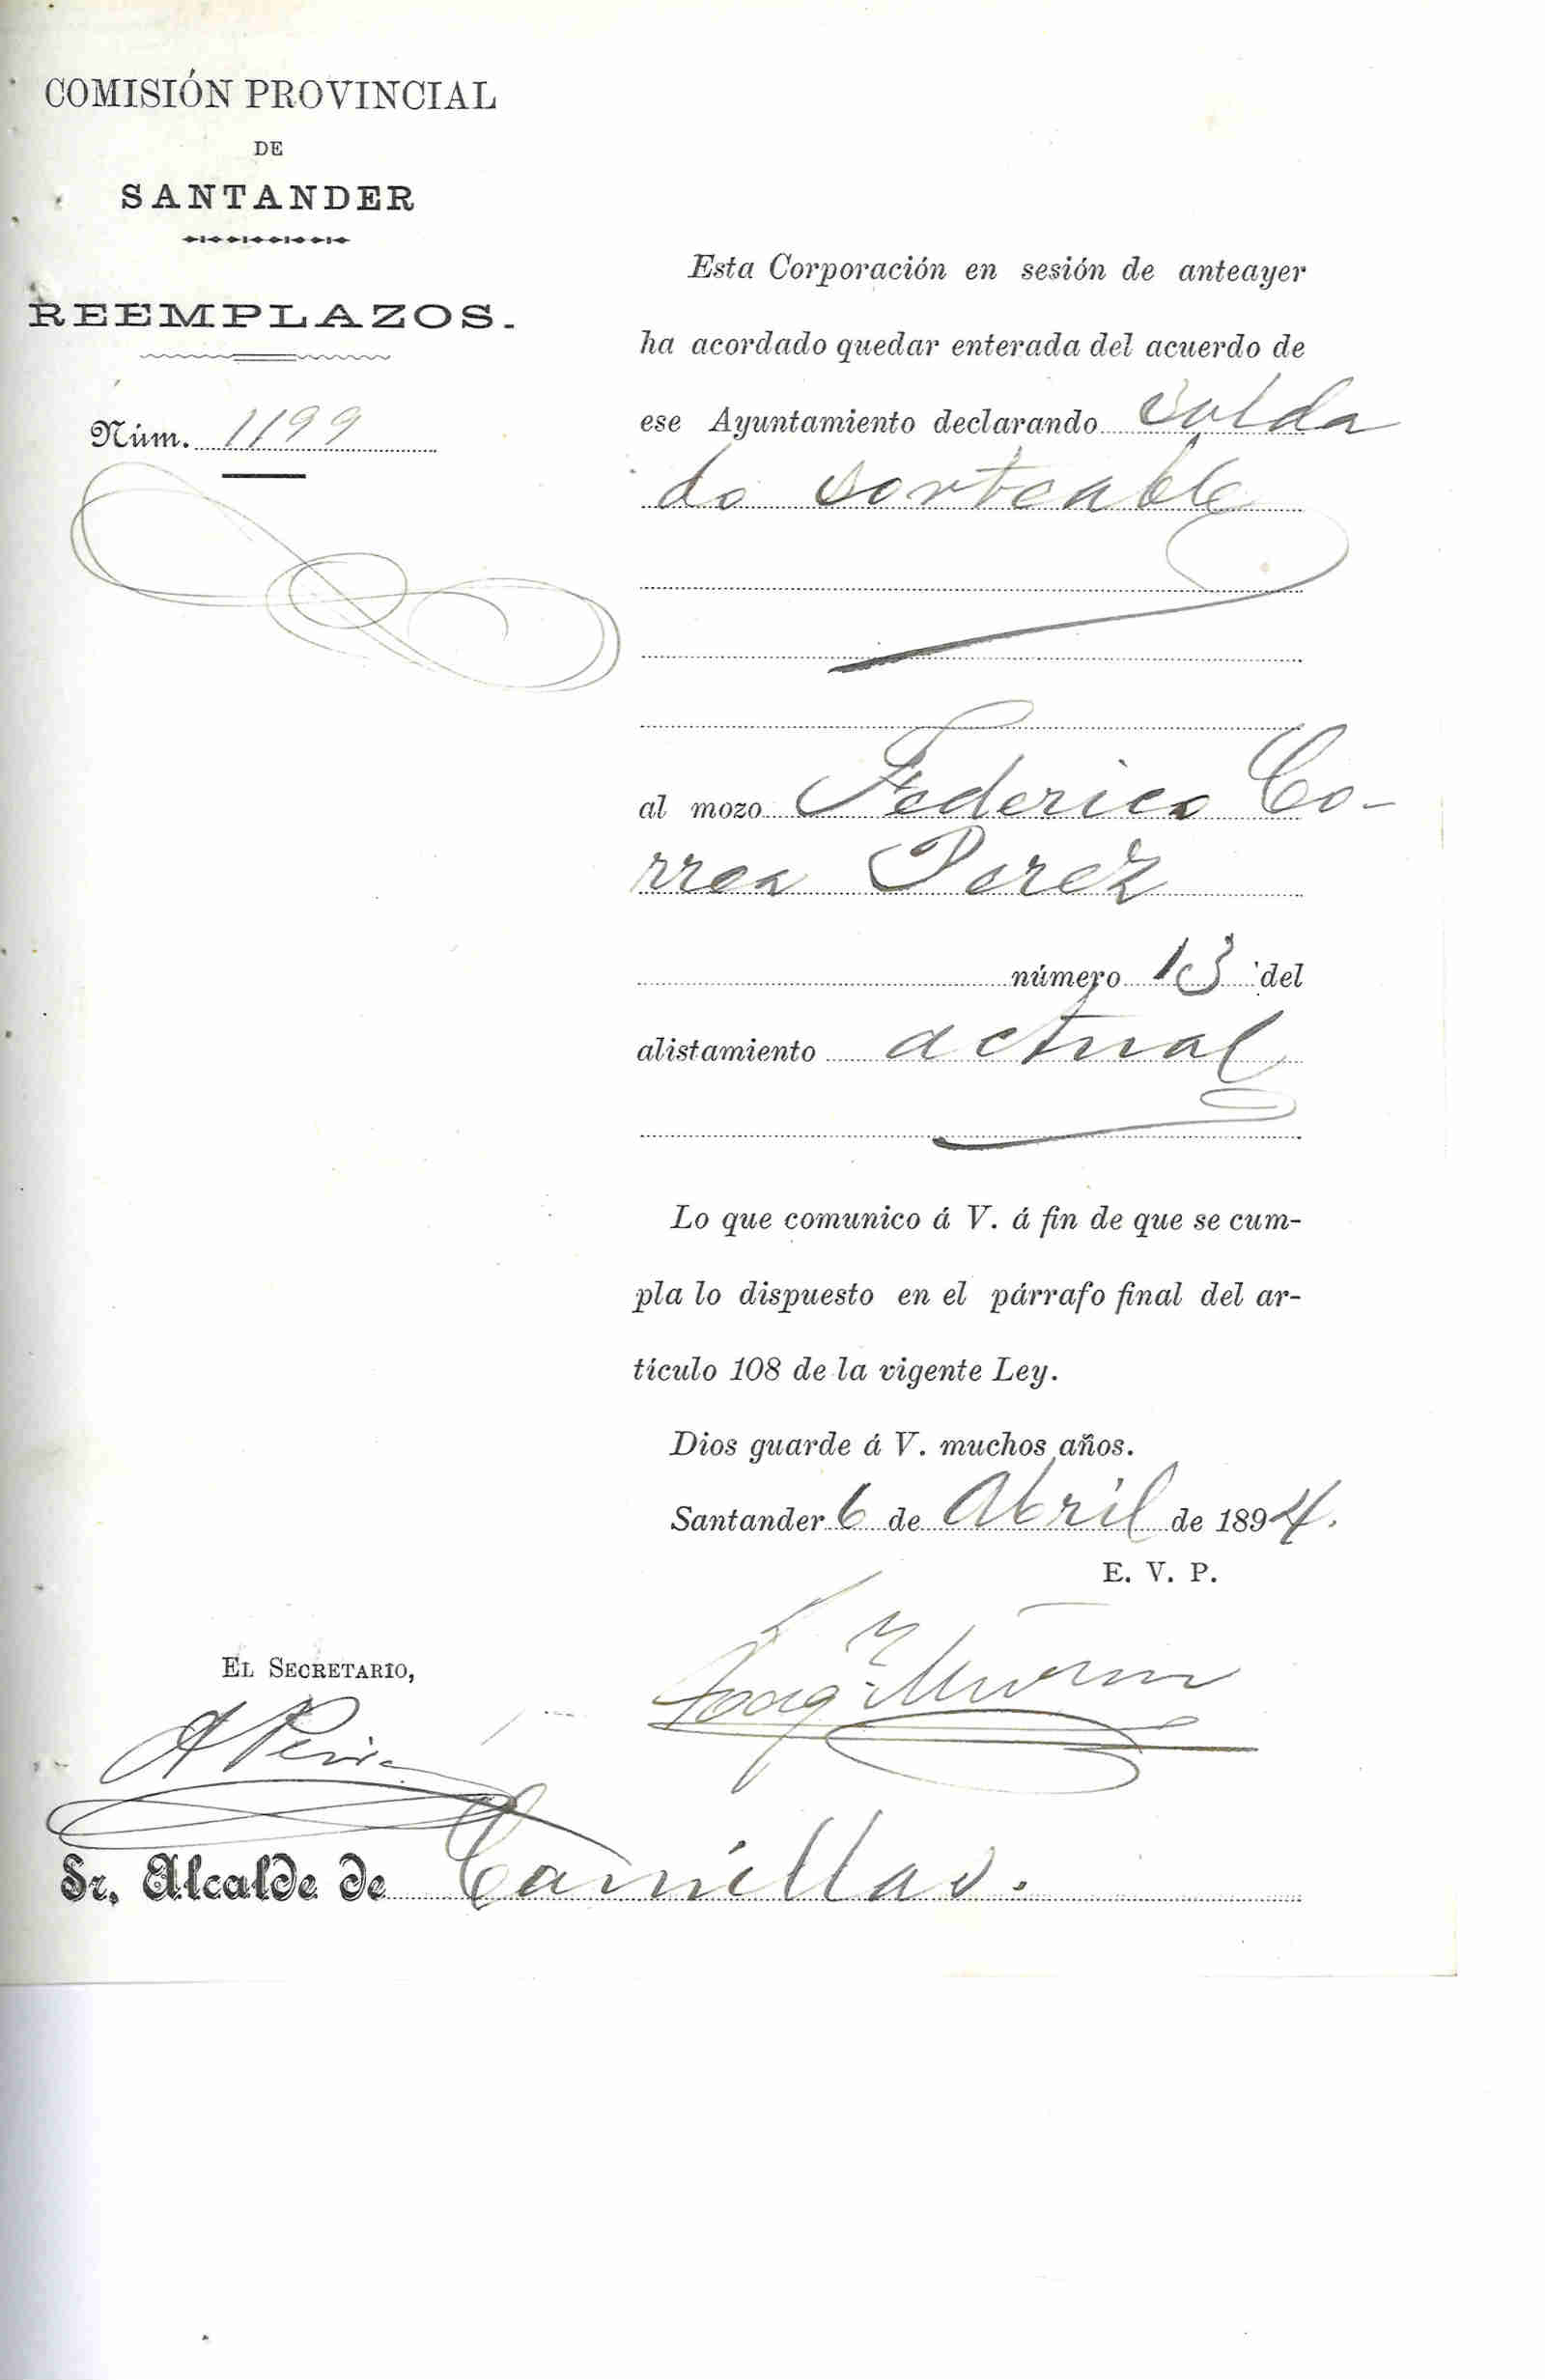 COMISIÓN PROVINCIAL
DE
SANTANDER
REEMPLAZOS.
Núm. 1199
Esta Corporación en sesión de anteayer
ha acordado quedar enterada del acuerdo de
ese Ayuntamiento declarando solda
do sorteable
al mozo Federico Co-
rrea Perez
número 13 del
alistamiento actual
Lo que comunico á V. á fin de que se cum-
pla lo dispuesto en el párrafo final del ar-
tículo 108 de la vigente Ley.
Dios guarde á V. muchos años.
Santander 6 de Abril de 1894.
E. V. P.
EL SECRETARIO,
Sr. Alcalde de